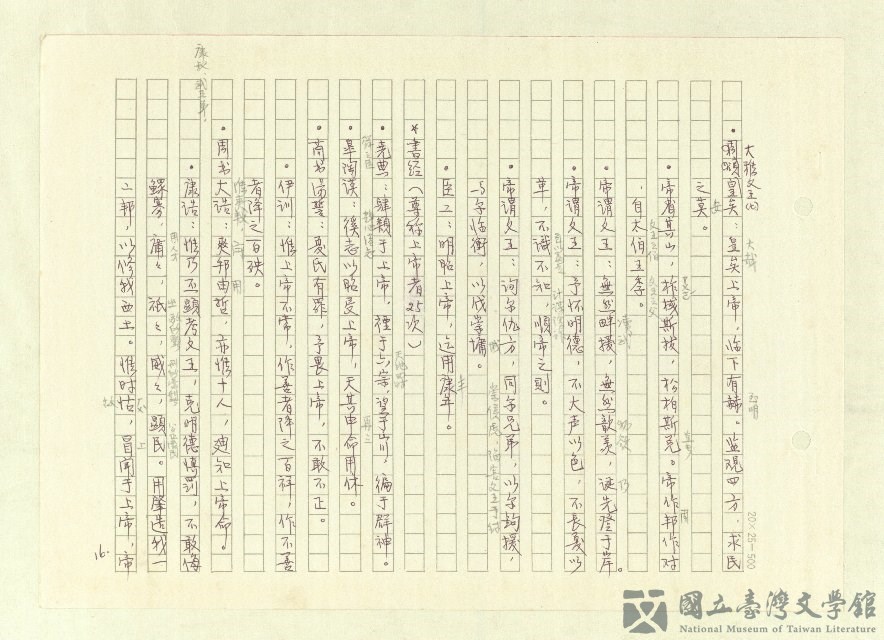 大雅文王的
•周頌皇矣：皇矣上帝，临下有赫。监观四方，求民
之莫。
•帝省其山，柞棫斯拔，松柏斯兑。帝作邦作对
，自太伯王季。
•帝谓文王：無然畔援，無然歆羡，诞先登于岸。
•帝谓文王：予怀明德，不大声以色，不长夏以
革，不识不知，顺帝之则。
•帝谓文王：询尔仇方，同尔兄弟，以尔钩援，
与尔临衝，以伐崇墉。
•臣工：明昭上帝，迄用康年。
*書经（尊称上帝者25次）
•堯典：肆類于上帝，禋于六宗，望于山川，徧于群神。
•皋陶谟：徯志以昭受上帝，天其申命用休。
•商书湯誓：夏氏有罪，予畏上帝，不敢不正。
•伊训：惟上帝不常，作善者降之百祥，作不善
者降之百殃。
•周书大诰：爽邦由哲，亦惟十人，迪知上帝命。
•康诰：惟乃丕顯考文王，克明德慎罚，不敢侮
鳏寡，庸々，祗々，威々，顕民。用肇造我一
二邦，以修我西土。惟时怙，冒闻于上帝，帝
16.
20×25=500
國立臺灣文學館
National Museum of Taiwan Literature